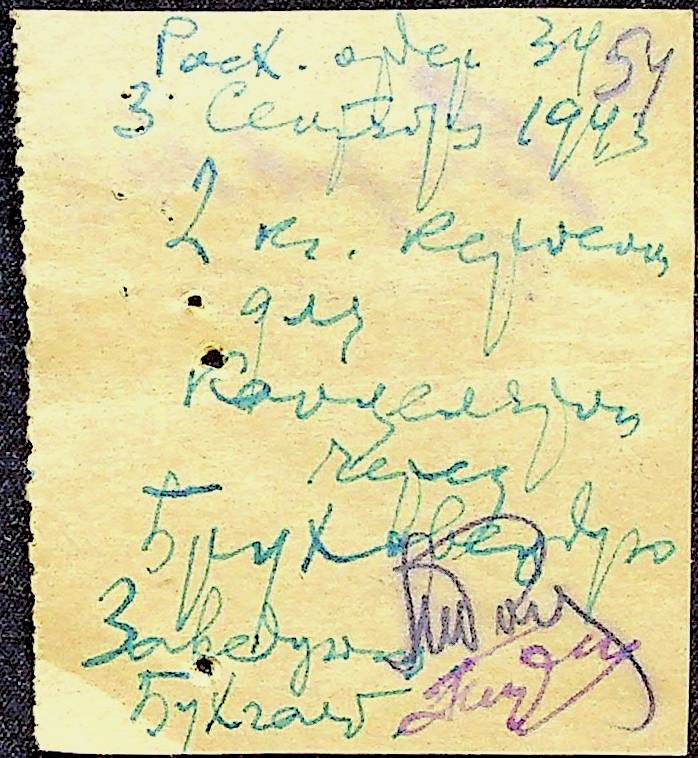 Расх. ордер 3454
3 Сентября 1943
2 кг. керосин
для
Канцелярии
через
Заведующ
Бухгалт